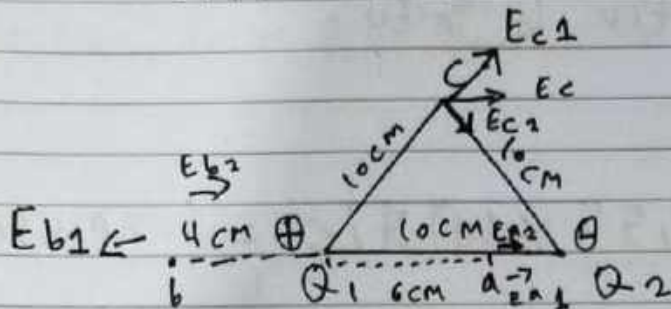 Ec1
C Ec
Ec2
10cm 10 cm
Eb2
Eb1 4cm ⊕ 10cm Ea2 ⊖
b Q1 6cm a Ea1 Q2